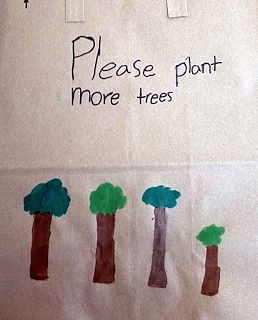 Please plant
more trees